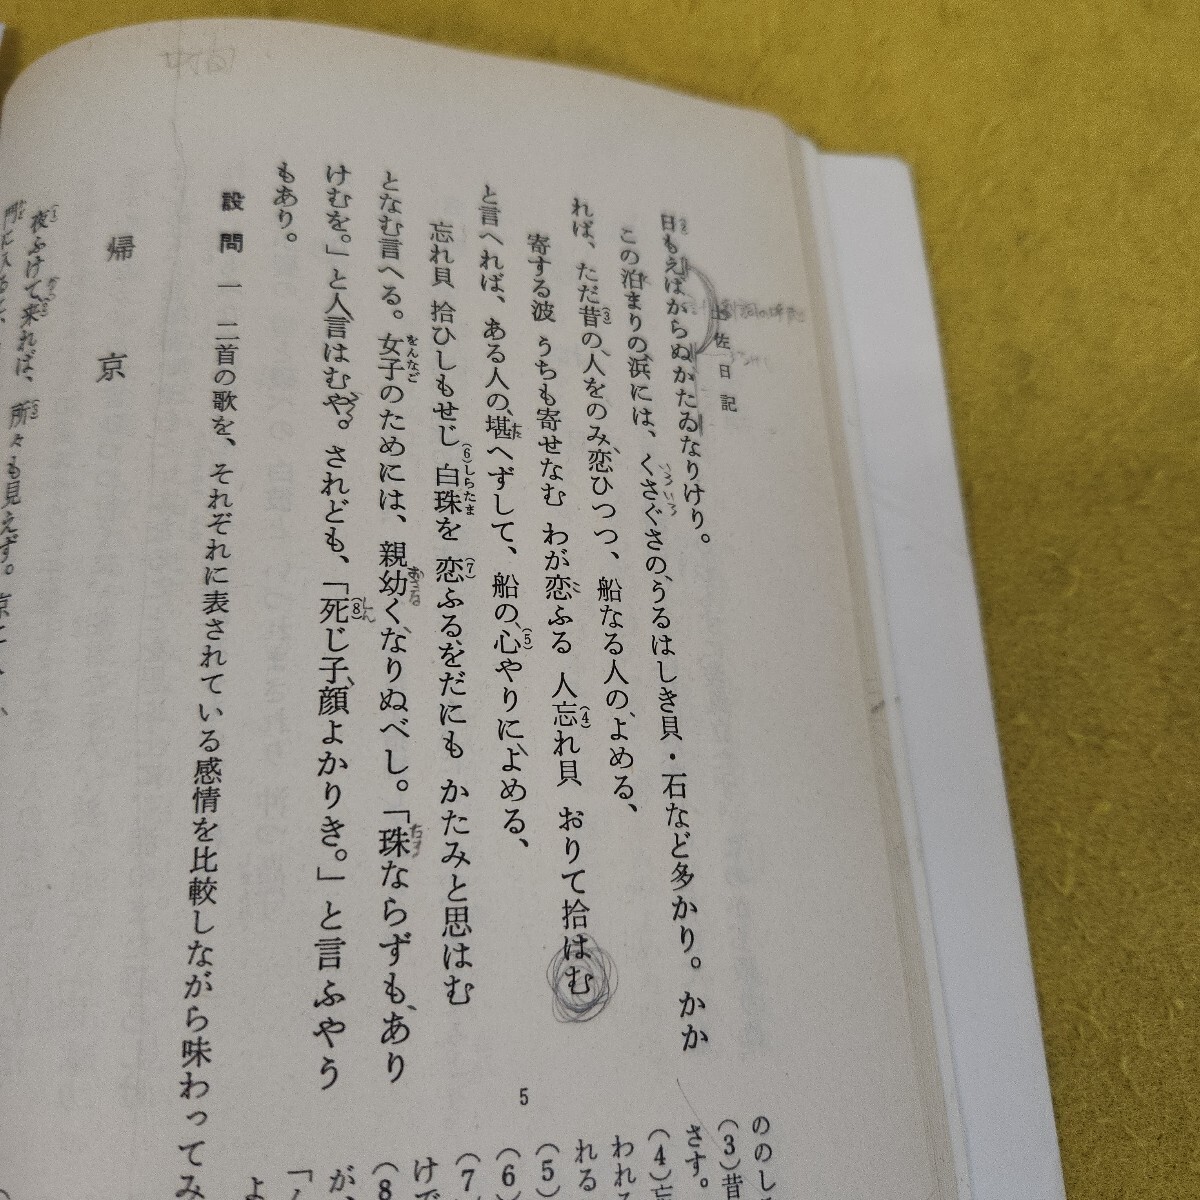 土佐日記
日もえばからぬかたゐなりけり。
この泊まりの浜には、くさぐさのうるはしき貝・石など多かり。かか
れば、ただ昔の人をのみ恋ひつつ、船なる人のよめる、
寄する波 うちも寄せなむ わが恋ふる 人忘れ貝 おりて拾はむ
と言へれば、ある人の堪へずして、船の心やりによめる、
忘れ貝 拾ひしもせじ 白珠を 恋ふるをだにも かたみと思はむ
となむ言へる。女子のためには、親幼くなりぬべし。「珠ならずもあり
けむを。」と人言はむや。されども、「死じ子、顔よかりき。」と言ふやう
もあり。
設問 一 二首の歌を、それぞれに表されている感情を比較しながら味わってみ
帰京
夜ふけて来れば、所々も見えず。京に
5
ののし
(3)昔
さす。
(4)忘
われ
れる
(5)
(6)
(7)
けで
(8
が、